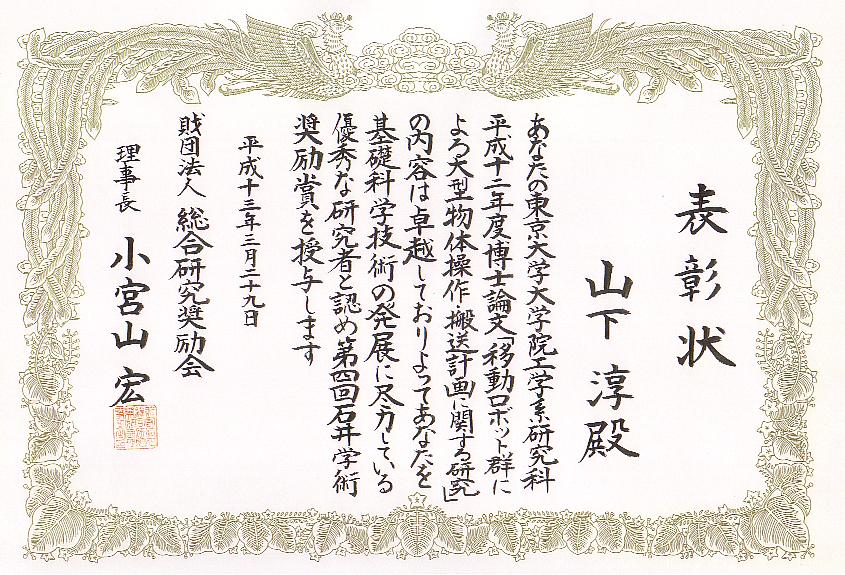 表彰状
山下淳殿
あなたの東京大学大学院工学系研究科
平成十二年度博士論文「移動ロボット群に
よる大型物体操作・搬送計画に関する研究」
の内容は卓越しておりよってあなたを
基礎科学技術の発展に尽力している
優秀な研究者と認め第四回石井学術
奨励賞を授与します
平成十三年三月二十九日
財団法人 総合研究奨励会
理事長 小宮山 宏